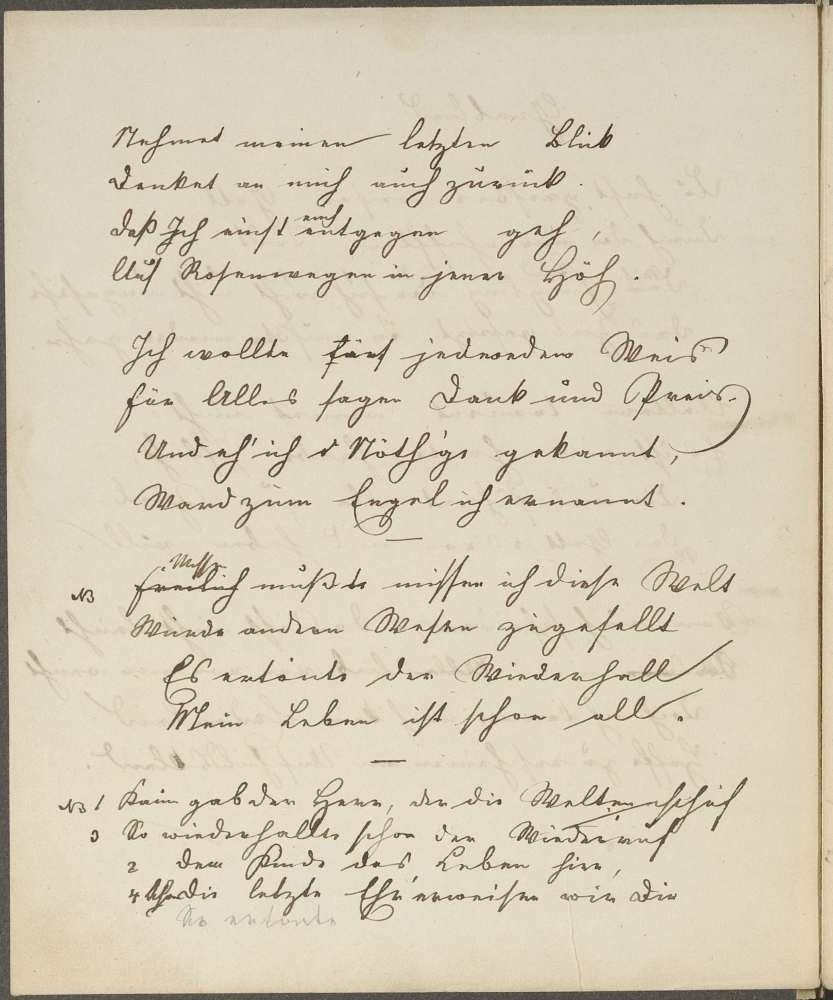 Nehmet meinen letzten Blick
Denket an mich auch zurück.
daß Ich einst euch entgegen geh,
Auf Rosenwegen in jener Höh.
Ich wollte jedwedem Weis
für Alles sagen Dank und Preis.
Und eh' ich d Nöth'ge gekannt,
Ward zum Engel ich ernannt.
—
NB freilich mußte missen ich diese Welt
Wurde andern Wesen zugesellt
Es ertönte der Wiederhall
Mein Leben ist schon all.
—
NB 1 Kaum gab der Herr, der die Welten schuf
3 So wiederhallte schon der Wiederruf
2 dem Kinde das Leben hier,
4 die letzte Ehr' erweisen wir Dir
So ertönte